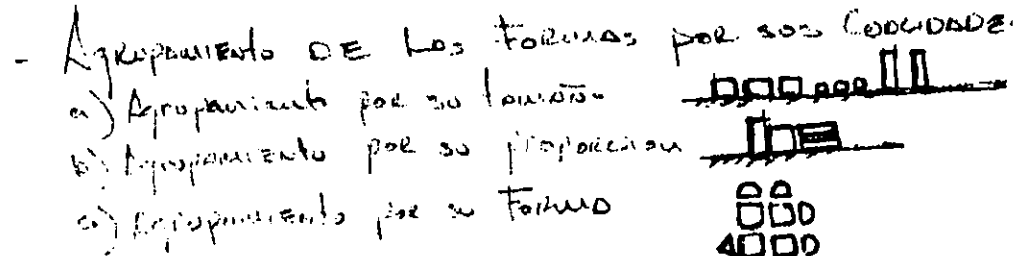 - Agrupamiento DE Las Formas por sus Cualidades
a) Agrupamiento por su tamaño
b) Agrupamiento por su proporción
c) Agrupamiento por su Forma